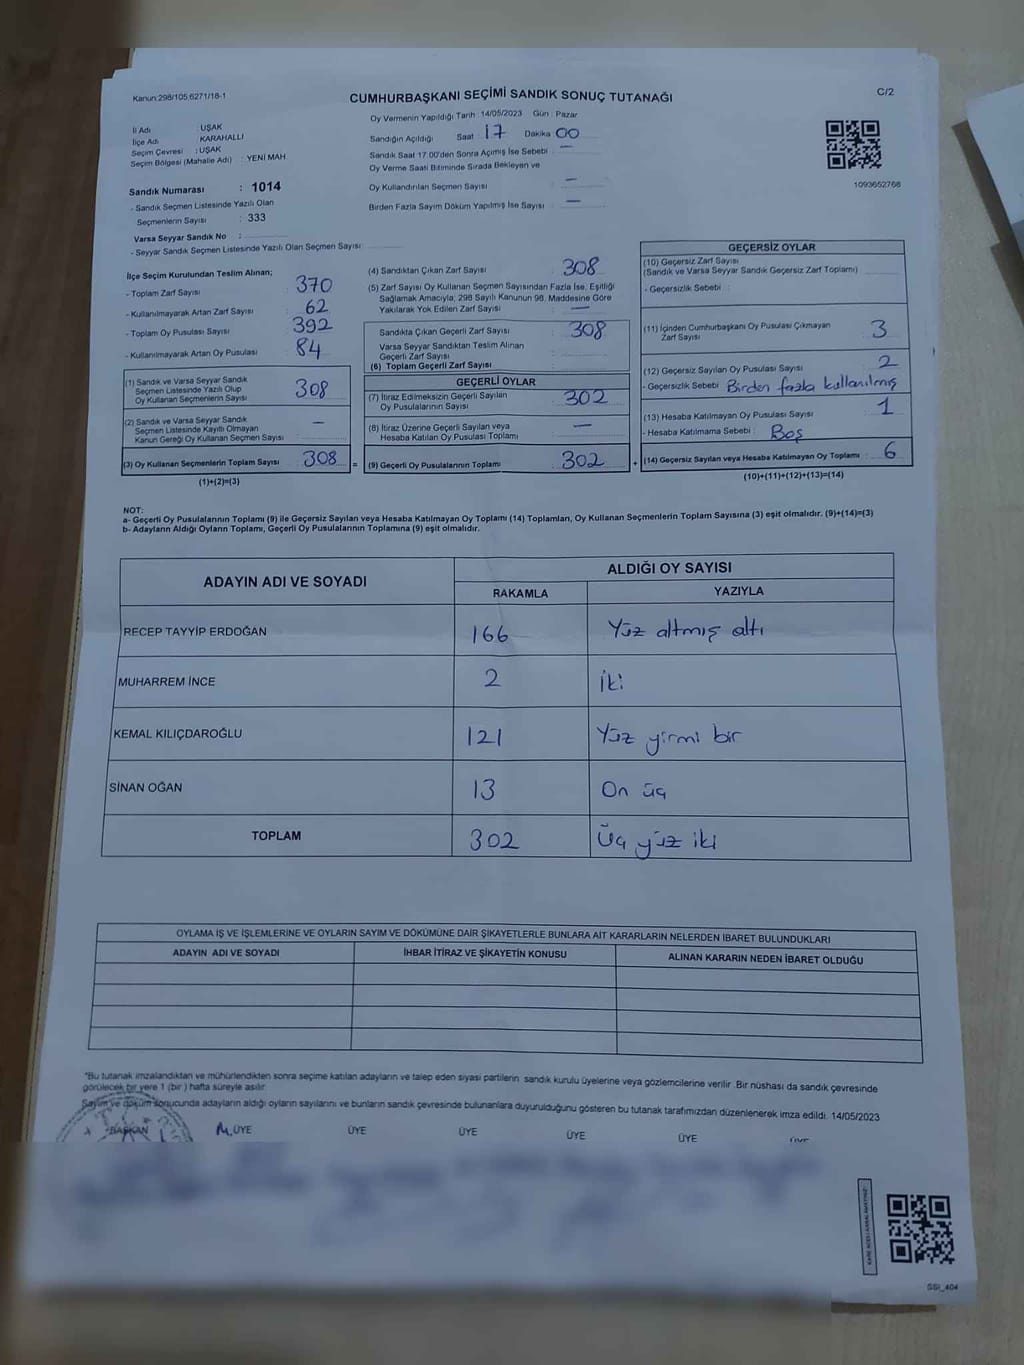 Kanun:298/105,6271/18-1
CUMHURBAŞKANI SEÇİMİ SANDIK SONUÇ TUTANAĞI
C/2
Oy Vermenin Yapıldığı Tarih :14/05/2023 Gün : Pazar
İl Adı : UŞAK
İlçe Adı : KARAHALLI
Seçim Çevresi : UŞAK
Seçim Bölgesi (Mahalle Adı) : YENİ MAH.
Sandığın Açıldığı Saat : 17 Dakika 00
Sandık Saat 17:00'den Sonra Açımış İse Sebebi : —
Oy Verme Saati Bitiminde Sırada Bekleyen ve
Oy Kullandırılan Seçmen Sayısı : —
Birden Fazla Sayım Döküm Yapılmış İse Sayısı : —
1093652768
Sandık Numarası : 1014
- Sandık Seçmen Listesinde Yazılı Olan
Seçmenlerin Sayısı : 333
Varsa Seyyar Sandık No :
- Seyyar Sandık Seçmen Listesinde Yazılı Olan Seçmen Sayısı:
İlçe Seçim Kurulundan Teslim Alınan;
- Toplam Zarf Sayısı : 370
- Kullanılmayarak Artan Zarf Sayısı : 62
- Toplam Oy Pusulası Sayısı : 392
- Kullanılmayarak Artan Oy Pusulası : 84
(1) Sandık ve Varsa Seyyar Sandık
Seçmen Listesinde Yazılı Olup
Oy Kullanan Seçmenlerin Sayısı : 308
(2) Sandık ve Varsa Seyyar Sandık
Seçmen Listesinde Kayıtlı Olmayan
Kanun Gereği Oy Kullanan Seçmen Sayısı : —
(3) Oy Kullanan Seçmenlerin Toplam Sayısı : 308
(1)+(2)=(3)
(4) Sandıktan Çıkan Zarf Sayısı : 308
(5) Zarf Sayısı Oy Kullanan Seçmen Sayısından Fazla İse, Eşitliği
Sağlamak Amacıyla; 298 Sayılı Kanunun 98. Maddesine Göre
Yakılarak Yok Edilen Zarf Sayısı : —
Sandıkta Çıkan Geçerli Zarf Sayısı : 308
Varsa Seyyar Sandıktan Teslim Alınan
Geçerli Zarf Sayısı :
(6) Toplam Geçerli Zarf Sayısı :
GEÇERLİ OYLAR
(7) İtiraz Edilmeksizin Geçerli Sayılan
Oy Pusulalarının Sayısı : 302
(8) İtiraz Üzerine Geçerli Sayılan veya
Hesaba Katılan Oy Pusulası Toplamı : —
= (9) Geçerli Oy Pusulalarının Toplamı : 302 +
GEÇERSİZ OYLAR
(10) Geçersiz Zarf Sayısı
(Sandık ve Varsa Seyyar Sandık Geçersiz Zarf Toplamı) :
- Geçersizlik Sebebi :
(11) İçinden Cumhurbaşkanı Oy Pusulası Çıkmayan
Zarf Sayısı : 3
(12) Geçersiz Sayılan Oy Pusulası Sayısı : 2
- Geçersizlik Sebebi : Birden fazla kullanılmış
(13) Hesaba Katılmayan Oy Pusulası Sayısı : 1
- Hesaba Katılmama Sebebi : Boş
(14) Geçersiz Sayılan veya Hesaba Katılmayan Oy Toplamı : 6
(10)+(11)+(12)+(13)=(14)
NOT:
a- Geçerli Oy Pusulalarının Toplamı (9) ile Geçersiz Sayılan veya Hesaba Katılmayan Oy Toplamı (14) Toplamları, Oy Kullanan Seçmenlerin Toplam Sayısına (3) eşit olmalıdır. (9)+(14)=(3)
b- Adayların Aldığı Oyların Toplamı, Geçerli Oy Pusulalarının Toplamına (9) eşit olmalıdır.
ADAYIN ADI VE SOYADI
ALDIĞI OY SAYISI
RAKAMLA YAZIYLA
RECEP TAYYİP ERDOĞAN 166 Yüz altmış altı
MUHARREM İNCE 2 İki
KEMAL KILIÇDAROĞLU 121 Yüz yirmi bir
SİNAN OĞAN 13 On üç
TOPLAM 302 Üç yüz iki
OYLAMA İŞ VE İŞLEMLERİNE VE OYLARIN SAYIM VE DÖKÜMÜNE DAİR ŞİKAYETLERLE BUNLARA AİT KARARLARIN NELERDEN İBARET BULUNDUKLARI
ADAYIN ADI VE SOYADI İHBAR İTİRAZ VE ŞİKAYETİN KONUSU ALINAN KARARIN NEDEN İBARET OLDUĞU
*Bu tutanak imzalandıktan ve mühürlendikten sonra seçime katılan adayların ve talep eden siyasi partilerin sandık kurulu üyelerine veya gözlemcilerine verilir. Bir nüshası da sandık çevresinde
görülecek bir yere 1 (bir) hafta süreyle asılır.
Sayım ve döküm sonucunda adayların aldığı oyların sayılarını ve bunların sandık çevresinde bulunanlara duyurulduğunu gösteren bu tutanak tarafımızdan düzenlenerek imza edildi. 14/05/2023
BAŞKAN ÜYE ÜYE ÜYE ÜYE ÜYE ÜYE
SSI_404